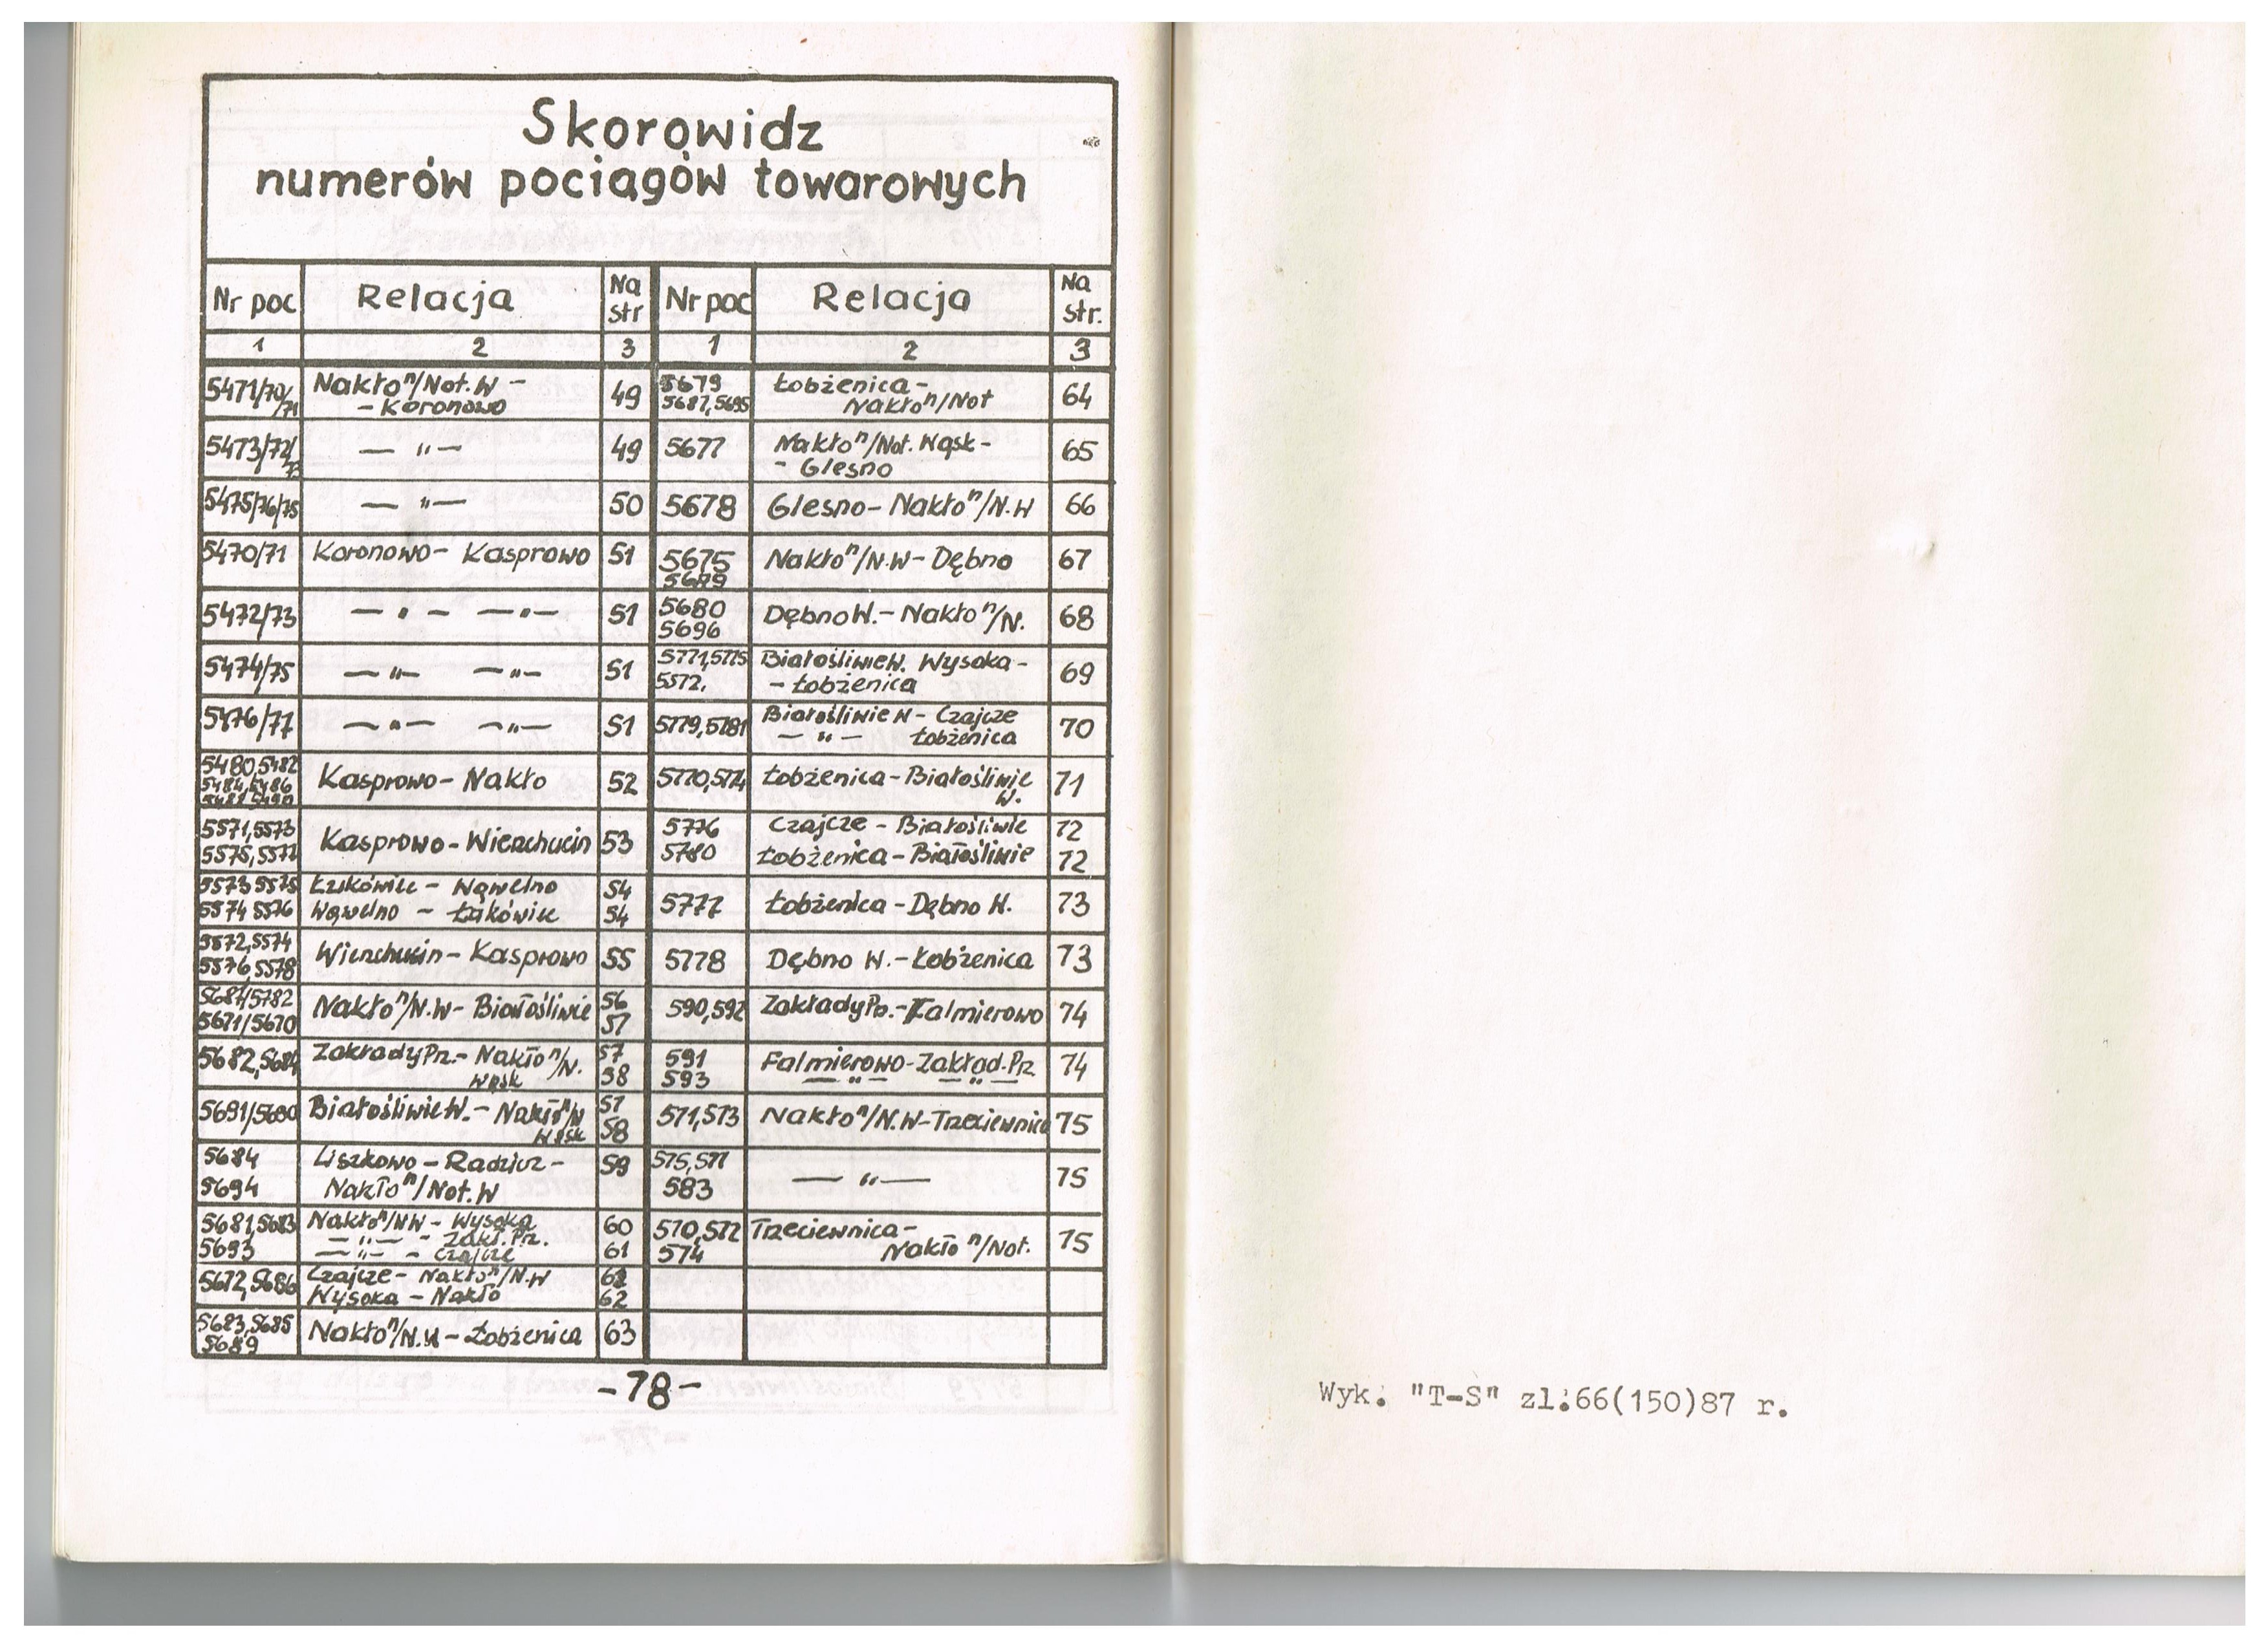 Skorowidz
numerów pociągów towarowych
Nr poc Relacja Na str Nr poc Relacja Na str.
1 2 3 1 2 3
5471/70/71 Nakło n/Not. W - - Koronowo 49
5679 5687,5695 Łobżenica - Nakło n/Not 64
5473/72/73 — " — 49
5677 Nakło n/Not. Wąsk - - Glesno 65
5475/76/75 — " — 50
5678 Glesno - Nakło n/N.W 66
5470/71 Koronowo - Kasprowo 51
5675 Nakło n/N.W - Dębno 67
5472/73 — " — — " — 51
5680 5696 Dębno W. - Nakło n/N. 68
5474/75 — " — — " — 51
5771,5775 5572. Białośliwie W. Wysoka - - Łobżenica 69
5476/77 — " — — " — 51
5779,5781 Białośliwie W - Czajcze — " — Łobżenica 70
5480,5482 5484,5486 5488,5490 Kasprowo - Nakło 52
5770,5774 Łobżenica - Białośliwie W. 71
5571,5573 5575,5577 Kasprowo - Wierzchucin 53
5776 Czajcze - Białośliwie 72
5780 Łobżenica - Białośliwie 72
5573 5575 Łukówiec - Wąwelno 54
5574 5576 Wąwelno - Łukówiec 54
5777 Łobżenica - Dębno W. 73
5572,5574 5576,5578 Wierzchucin - Kasprowo 55
5778 Dębno W. - Łobżenica 73
5687/5782 5671/5670 Nakło n/N.W - Białośliwie 56 57
590,592 Zakłady Pr. - Falmierowo 74
5682,5684 Zakrady Pz. - Nakło n/N. Wąsk 57 38
591 593 Falmierowo - Zakład. Pz — " — — " — 74
5691/5690 Białośliwie W. - Nakło n/N Wąsk 57 58
571,573 Nakło n/N.W - Trzeciewnica 75
5684 5694 Liszkowo - Radzicz - Nakło n/Not. W 59
575,577 583 — " — 75
5681,5683 5693 Nakło n/NW - Wysoka — " — - Zakł. Pz. — " — - Czajcze 60 61
570,572 574 Trzeciewnica - Nakło n/Not. 75
5672,5686 Czajcze - Nakło n/N.W Wysoka - Nakło 62
5683,5685 5689 Nakło n/N.W - Łobżenica 63
-78-
Wyk. "T-S" zl.66(150)87 r.